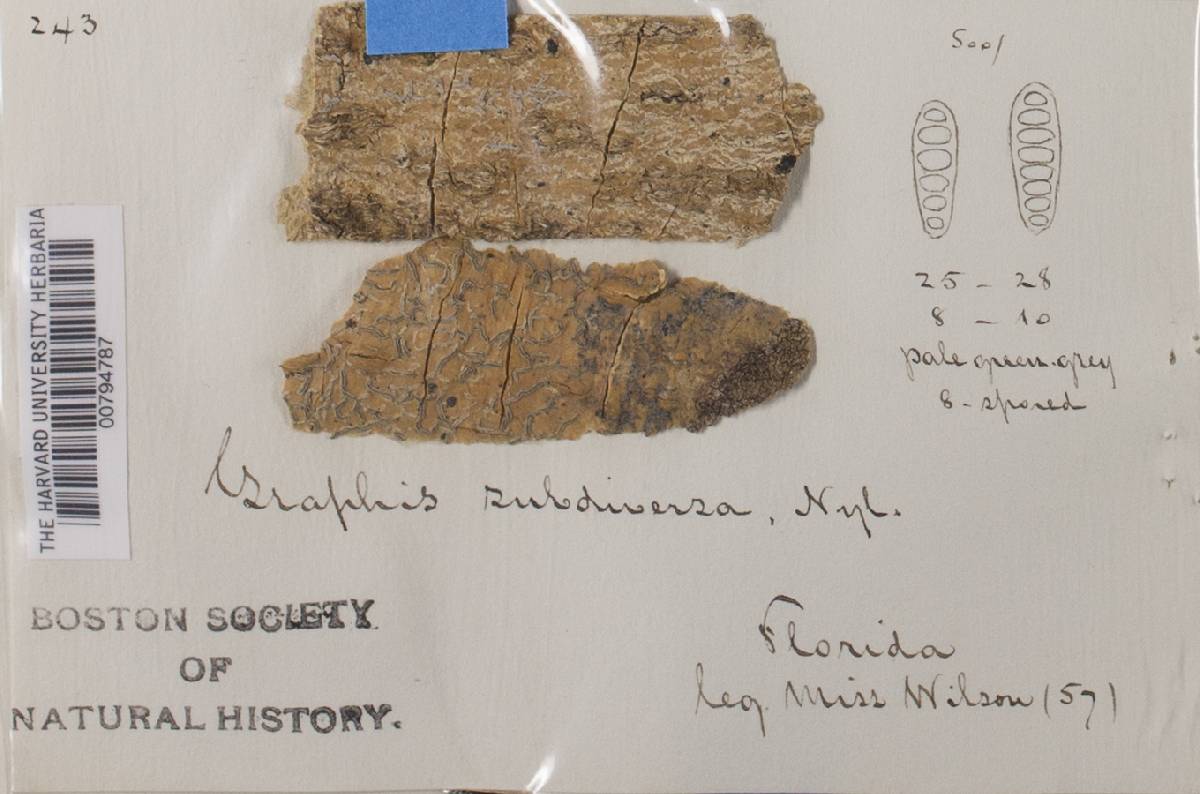 243
THE HARVARD UNIVERSITY HERBARIA
00794787
25 - 28
8 - 10
pale green-grey
8-spored
Graphis subdiversa, Nyl.
BOSTON SOCIETY
OF
NATURAL HISTORY.
Florida
leg. Miss Wilson (57)